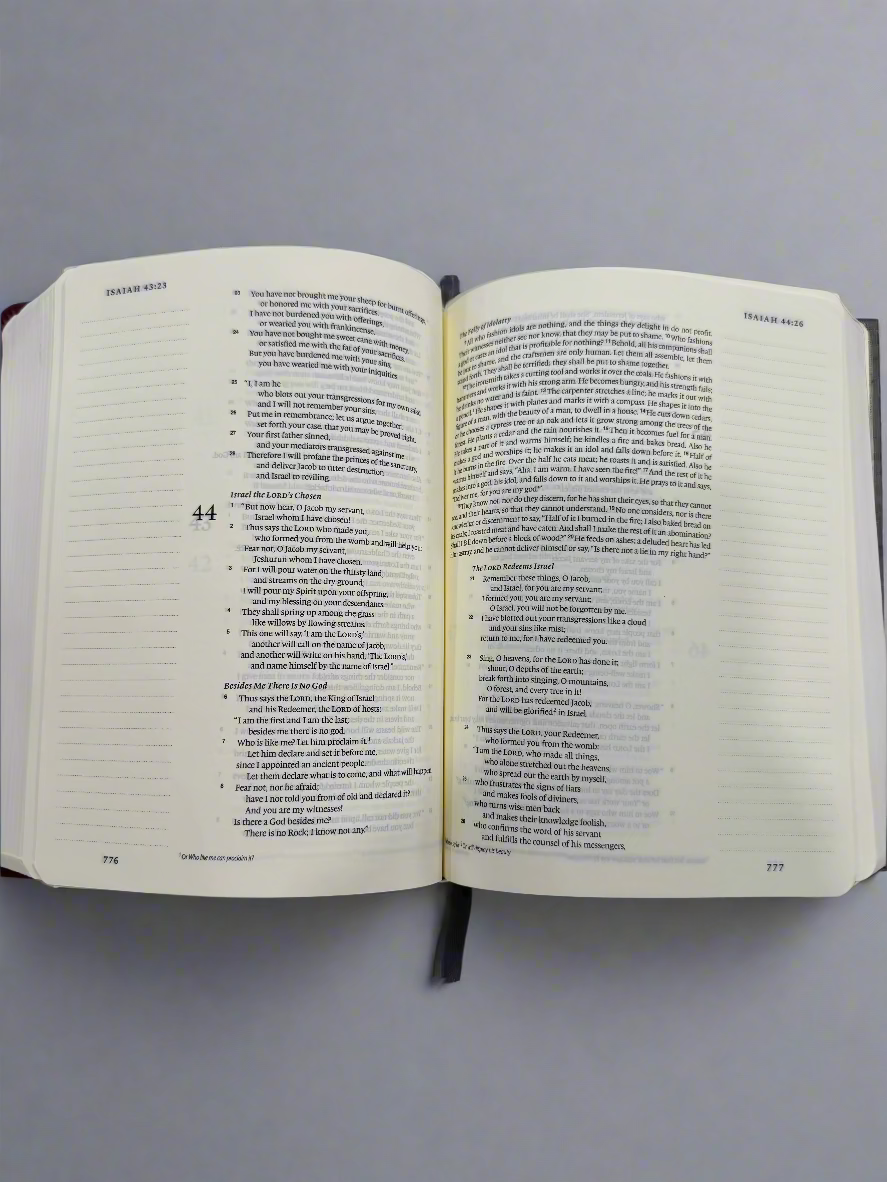 ISAIAH 43:23
23 You have not brought me your sheep for burnt offerings,
or honored me with your sacrifices.
I have not burdened you with offerings,
or wearied you with frankincense.
24 You have not bought me sweet cane with money,
or satisfied me with the fat of your sacrifices.
But you have burdened me with your sins;
you have wearied me with your iniquities.
25 "I, I am he
who blots out your transgressions for my own sake,
and I will not remember your sins.
26 Put me in remembrance; let us argue together;
set forth your case, that you may be proved right.
27 Your first father sinned,
and your mediators transgressed against me.
28 Therefore I will profane the princes of the sanctuary,
and deliver Jacob to utter destruction
and Israel to reviling.
Israel the LORD's Chosen
44 1 "But now hear, O Jacob my servant,
Israel whom I have chosen!
2 Thus says the LORD who made you,
who formed you from the womb and will help you:
Fear not, O Jacob my servant,
Jeshurun whom I have chosen.
3 For I will pour water on the thirsty land,
and streams on the dry ground;
I will pour my Spirit upon your offspring,
and my blessing on your descendants.
4 They shall spring up among the grass
like willows by flowing streams.
5 This one will say, 'I am the LORD's,'
another will call on the name of Jacob,
and another will write on his hand, 'The LORD's,'
and name himself by the name of Israel."
Besides Me There Is No God
6 Thus says the LORD, the King of Israel
and his Redeemer, the LORD of hosts:
"I am the first and I am the last;
besides me there is no god.
7 Who is like me? Let him proclaim it.1
Let him declare and set it before me,
since I appointed an ancient people.
Let them declare what is to come, and what will happen.
8 Fear not, nor be afraid;
have I not told you from of old and declared it?
And you are my witnesses!
Is there a God besides me?
There is no Rock; I know not any."
776
1 Or Who like me can proclaim it?
ISAIAH 44:26
The Folly of Idolatry
9 All who fashion idols are nothing, and the things they delight in do not profit.
Their witnesses neither see nor know, that they may be put to shame. 10 Who fashions
a god or casts an idol that is profitable for nothing? 11 Behold, all his companions shall
be put to shame, and the craftsmen are only human. Let them all assemble, let them
stand forth. They shall be terrified; they shall be put to shame together.
12 The ironsmith takes a cutting tool and works it over the coals. He fashions it with
hammers and works it with his strong arm. He becomes hungry, and his strength fails;
he drinks no water and is faint. 13 The carpenter stretches a line; he marks it out with
a pencil. He shapes it with planes and marks it with a compass. He shapes it into the
figure of a man, with the beauty of a man, to dwell in a house. 14 He cuts down cedars,
or he chooses a cypress tree or an oak and lets it grow strong among the trees of the
forest. He plants a cedar and the rain nourishes it. 15 Then it becomes fuel for a man.
He takes a part of it and warms himself; he kindles a fire and bakes bread. Also he
makes a god and worships it; he makes it an idol and falls down before it. 16 Half of
it he burns in the fire. Over the half he eats meat; he roasts it and is satisfied. Also he
warms himself and says, "Aha, I am warm, I have seen the fire!" 17 And the rest of it he
makes into a god, his idol, and falls down to it and worships it. He prays to it and says,
"Deliver me, for you are my god!"
18 They know not, nor do they discern, for he has shut their eyes, so that they cannot
see, and their hearts, so that they cannot understand. 19 No one considers, nor is there
knowledge or discernment to say, "Half of it I burned in the fire; I also baked bread on
its coals; I roasted meat and have eaten. And shall I make the rest of it an abomination?
Shall I fall down before a block of wood?" 20 He feeds on ashes; a deluded heart has led
him astray, and he cannot deliver himself or say, "Is there not a lie in my right hand?"
The LORD Redeems Israel
21 Remember these things, O Jacob,
and Israel, for you are my servant;
I formed you; you are my servant;
O Israel, you will not be forgotten by me.
22 I have blotted out your transgressions like a cloud
and your sins like mist;
return to me, for I have redeemed you.
23 Sing, O heavens, for the LORD has done it;
shout, O depths of the earth;
break forth into singing, O mountains,
O forest, and every tree in it!
For the LORD has redeemed Jacob,
and will be glorified2 in Israel.
24 Thus says the LORD, your Redeemer,
who formed you from the womb:
"I am the LORD, who made all things,
who alone stretched out the heavens,
who spread out the earth by myself,
25 who frustrates the signs of liars
and makes fools of diviners,
who turns wise men back
and makes their knowledge foolish,
26 who confirms the word of his servant
and fulfills the counsel of his messengers,
777